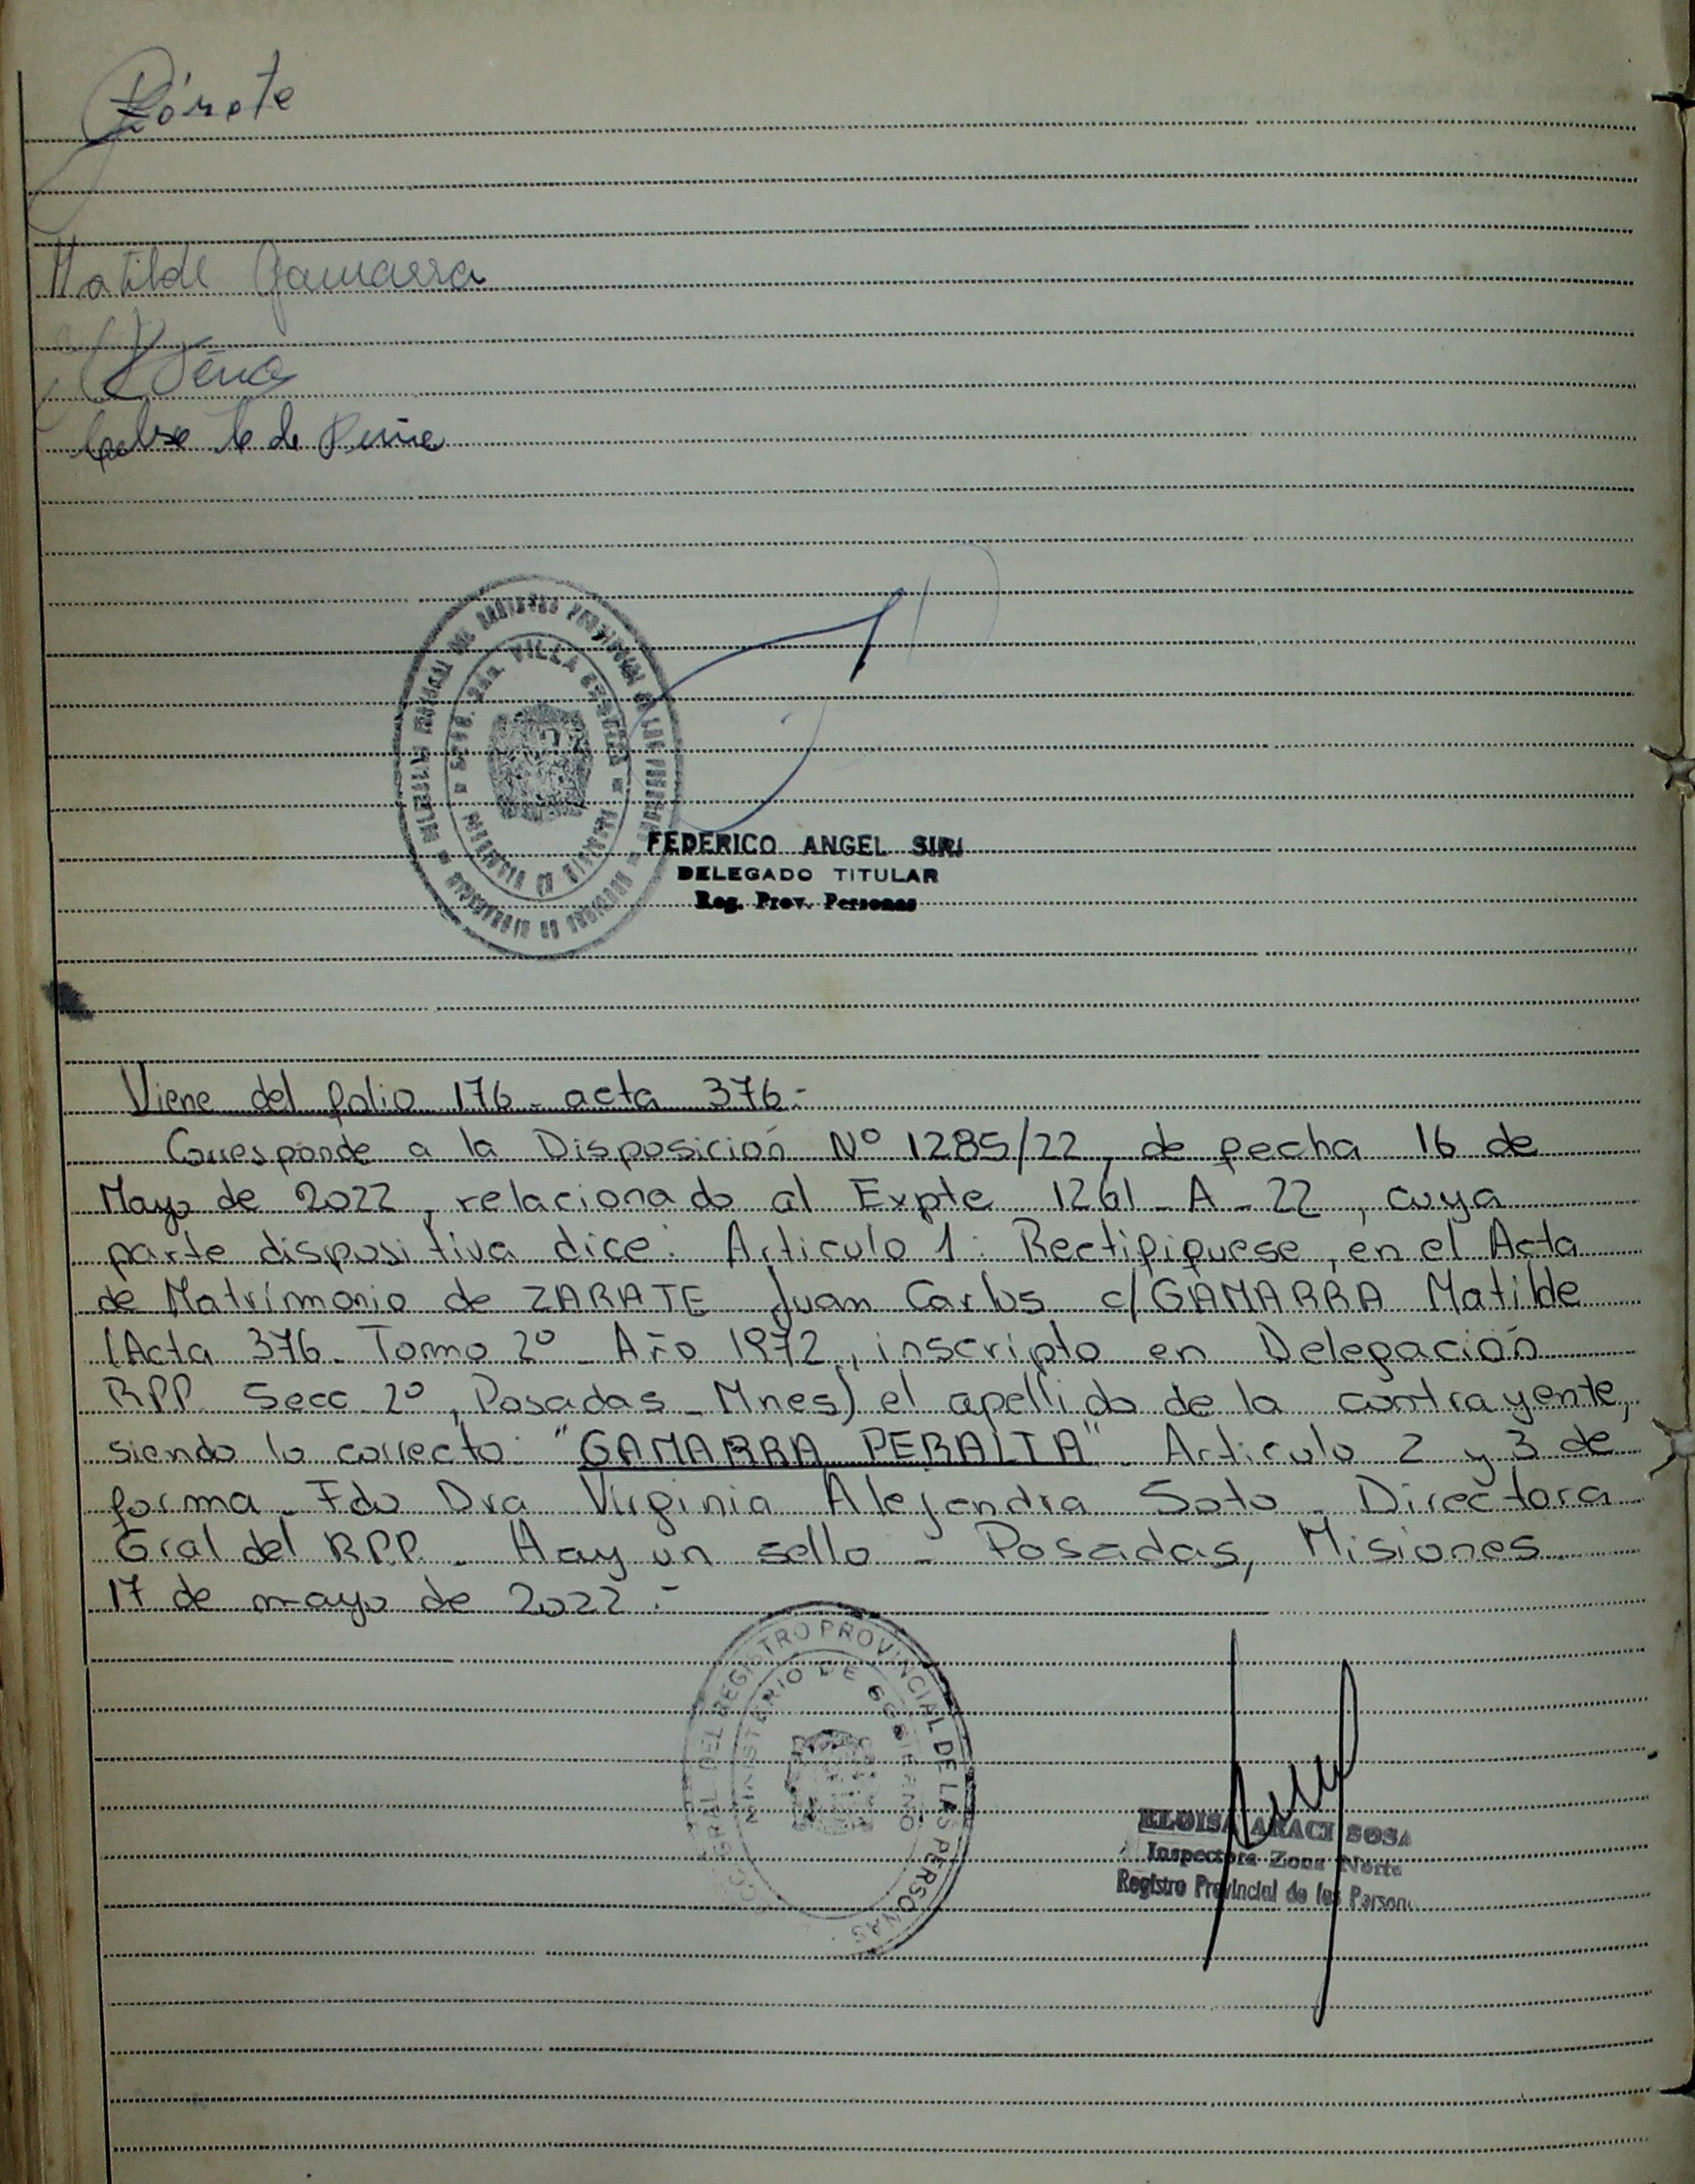 Zárate
Matilde Gamarra
Peña
de Peña
VILLA
FEDERICO ANGEL SIRI
DELEGADO TITULAR
Reg. Prov. Personas
Viene del folio 176 - acta 376.-
Corresponde a la Disposición Nº 1285/22, de fecha 16 de
Mayo de 2022, relacionado al Expte 1261 - A - 22, cuya
parte dispositiva dice: Articulo 1: Rectifiquese, en el Acta
de Matrimonio de ZARATE Juan Carlos c/GAMARRA Matilde
(Acta 376 - Tomo 2º - Año 1972, inscripto en Delegación
RPP. Secc 2º, Posadas - Mnes) el apellido de la contrayente,
siendo lo correcto: "GAMARRA PERALTA" - Articulo 2 y 3 de
forma - Fdo Dra Virginia Alejandra Soto - Directora
Gral del RPP. - Hay un sello - Posadas, Misiones
17 de mayo de 2022.-
DEL REGISTRO PROVINCIAL DE LAS PERSONAS
MINISTERIO DE GOBIERNO
ELOISA ARACI SOSA
Inspectora Zona Norte
Registro Provincial de las Person